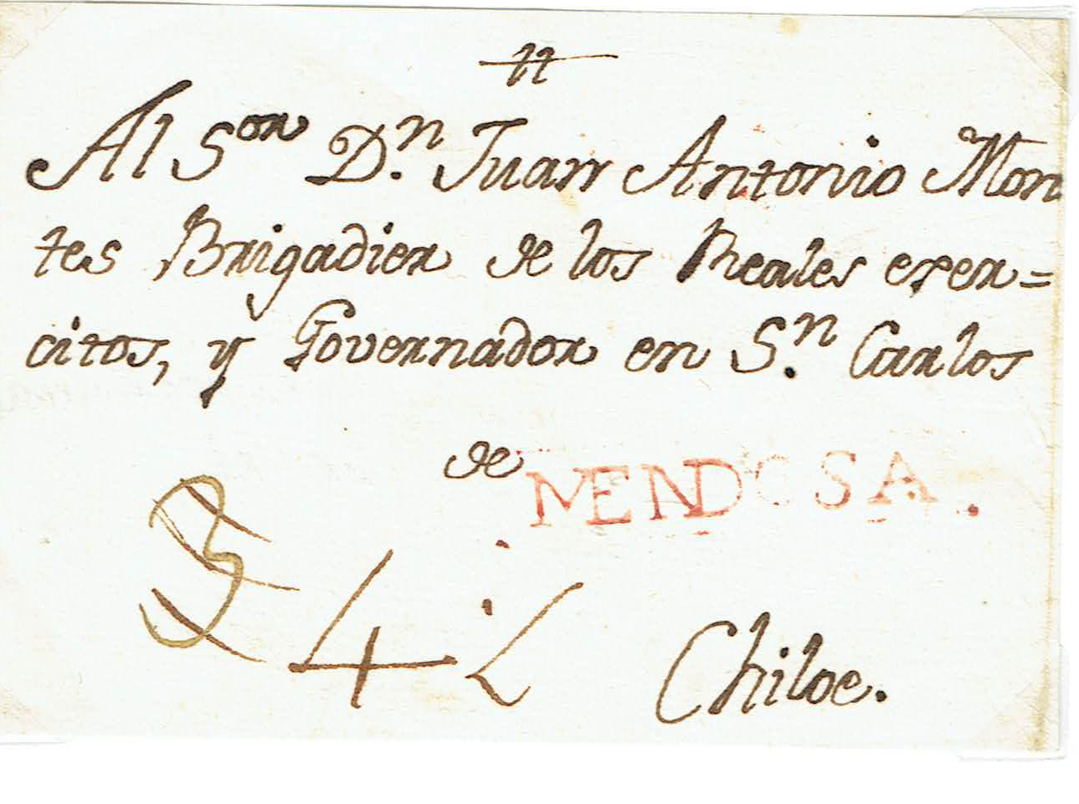 Al Sor Dn. Juan Antonio Mon
tes Brigadier de los Reales exer=
citos, y Governador en Sn. Carlos
de MENDOSA.
4
Chiloe.